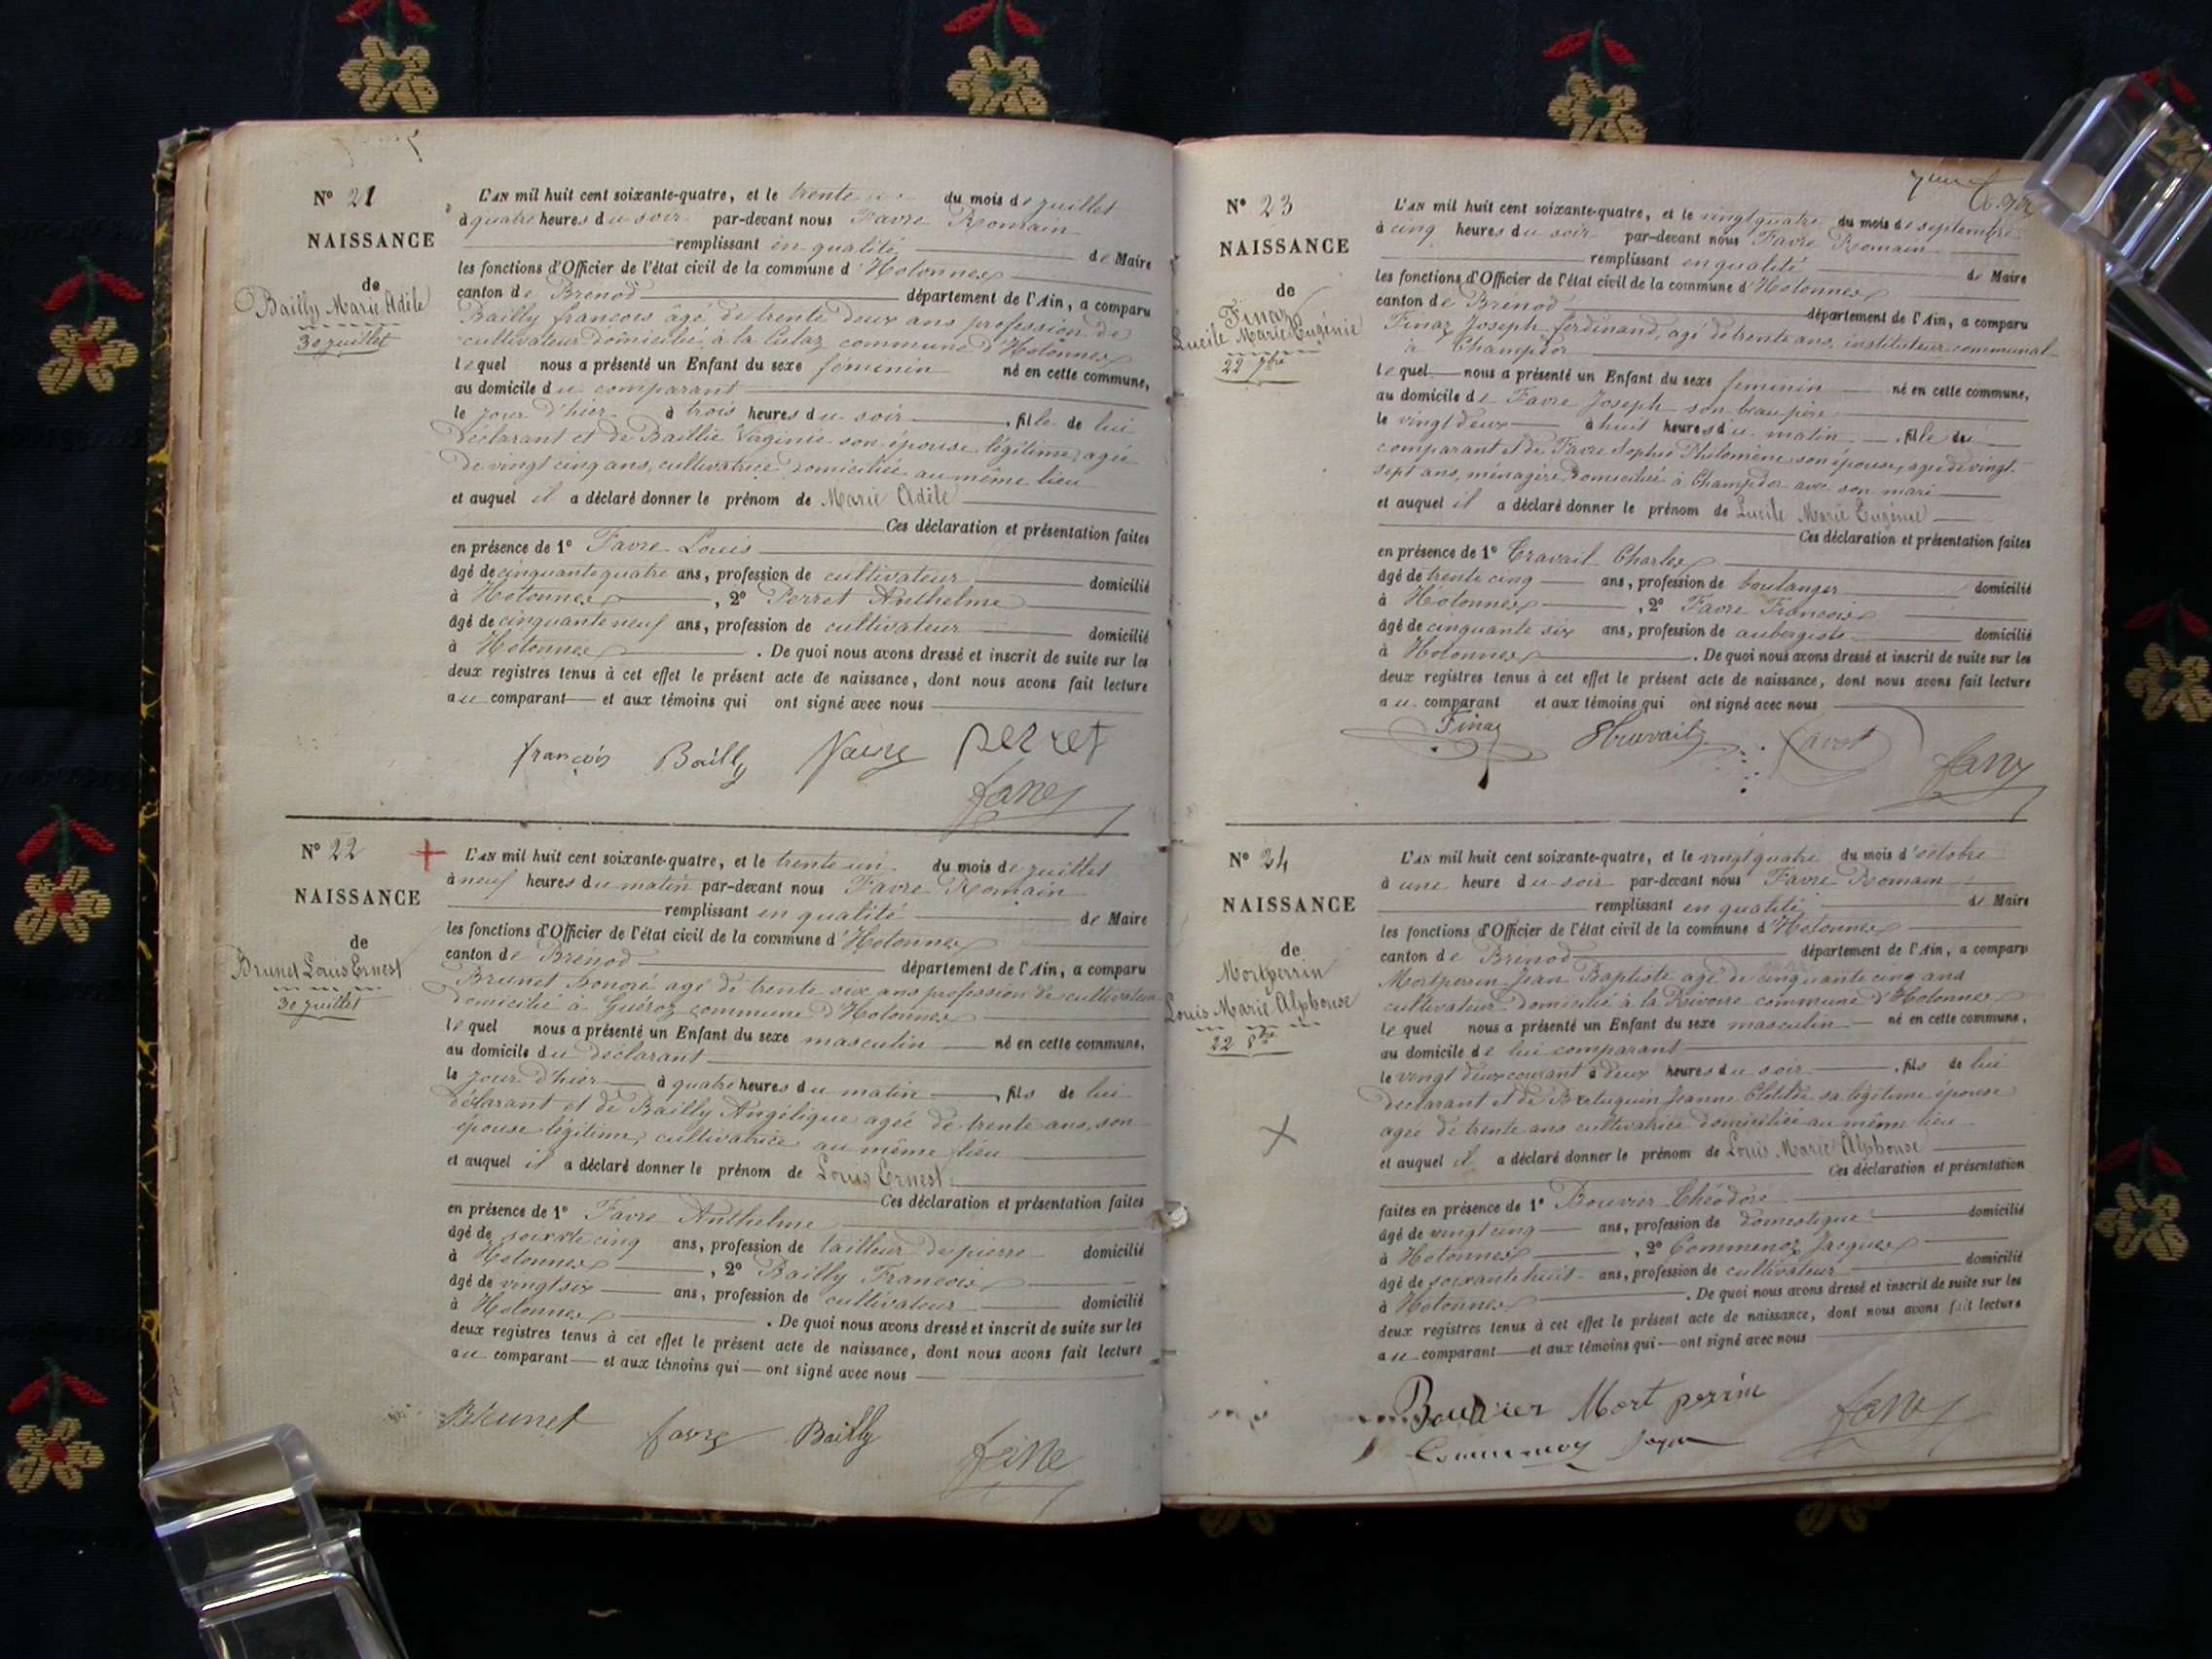 N° 21
NAISSANCE
de
Bailly Marie Adèle
30 juillet
L'AN mil huit cent soixante-quatre, et le trente du mois de juillet
à quatre heures du soir par-devant nous Favre Romain
remplissant en qualité de Maire
les fonctions d'Officier de l'état civil de la commune d'Hotonnes
canton de Brénod département de l'Ain, a comparu
Bailly françois âgé de trente deux ans profession de
cultivateur domicilié à la commune d'Hotonnes
lequel nous a présenté un Enfant du sexe féminin né en cette commune,
au domicile du comparant
le jour d'hier à trois heures du soir, fille de lui
déclarant et de Baillie Virginie son épouse légitime, agée
de vingt cinq ans, cultivatrice domiciliée au même lieu
et auquel il a déclaré donner le prénom de Marie Adèle
Ces déclaration et présentation faites
en présence de 1° Favre Louis
âgé de cinquante quatre ans, profession de cultivateur domicilié
à Hotonnes, 2° Perret Anthelme
âgé de cinquante neuf ans, profession de cultivateur domicilié
à Hotonnes. De quoi nous avons dressé et inscrit de suite sur les
deux registres tenus à cet effet le présent acte de naissance, dont nous avons fait lecture
au comparant et aux témoins qui ont signé avec nous
françois Bailly Favre perret
favre
N° 22
NAISSANCE
de
Brunet Louis Ernest
30 juillet
L'AN mil huit cent soixante-quatre, et le trente un du mois de juillet
à neuf heures du matin par-devant nous Favre Romain
remplissant en qualité de Maire
les fonctions d'Officier de l'état civil de la commune d'Hotonnes
canton de Brénod département de l'Ain, a comparu
Brunet honoré agé de trente six ans profession de cultivateur
domicilié à Guéroz commune d'Hotonnes
lequel nous a présenté un Enfant du sexe masculin né en cette commune,
au domicile du déclarant
le jour d'hier à quatre heures du matin, fils de lui
déclarant et de Bailly Angélique agée de trente ans, son
épouse légitime, cultivatrice au même lieu
et auquel il a déclaré donner le prénom de Louis Ernest
Ces déclaration et présentation faites
en présence de 1° Favre Anthelme
âgé de soixante cinq ans, profession de tailleur de pierre domicilié
à Hotonnes, 2° Bailly François
âgé de vingt six ans, profession de cultivateur domicilié
à Hotonnes. De quoi nous avons dressé et inscrit de suite sur les
deux registres tenus à cet effet le présent acte de naissance, dont nous avons fait lecture
au comparant et aux témoins qui ont signé avec nous
Brunet favre Bailly
favre
N° 23
NAISSANCE
de
Finaz
Lucile Marie Eugénie
22 7bre
L'AN mil huit cent soixante-quatre, et le vingt quatre du mois de septembre
à cinq heures du soir par-devant nous Favre Romain
remplissant en qualité de Maire
les fonctions d'Officier de l'état civil de la commune d'Hotonnes
canton de Brénod département de l'Ain, a comparu
Finaz Joseph ferdinand, agé de trente ans, instituteur communal
à Champdor
lequel nous a présenté un Enfant du sexe feminin né en cette commune,
au domicile de Favre Joseph son beau père
le vingt deux à huit heures du matin, fille du
comparant et de Favre Sophie Philomène son épouse, agée de vingt
sept ans, ménagère domiciliée à Champdor avec son mari
et auquel il a déclaré donner le prénom de Lucile Marie Eugénie
Ces déclaration et présentation faites
en présence de 1° Travail Charles
âgé de trente cinq ans, profession de boulanger domicilié
à Hotonnes, 2° Favre François
âgé de cinquante six ans, profession de aubergiste domicilié
à Hotonnes. De quoi nous avons dressé et inscrit de suite sur les
deux registres tenus à cet effet le présent acte de naissance, dont nous avons fait lecture
au comparant et aux témoins qui ont signé avec nous
Finaz
favre
N° 24
NAISSANCE
de
Mortperrin
Louis Marie Alphonse
22 8bre
L'AN mil huit cent soixante-quatre, et le vingt quatre du mois d'octobre
à une heure du soir par-devant nous Favre Romain
remplissant en qualité de Maire
les fonctions d'Officier de l'état civil de la commune d'Hotonnes
canton de Brénod département de l'Ain, a comparu
Mortperrin Jean Baptiste agé de cinquante cinq ans
cultivateur domicilié à la Rivoire commune d'Hotonnes
lequel nous a présenté un Enfant du sexe masculin né en cette commune,
au domicile de lui comparant
le vingt deux courant à deux heures du soir, fils de lui
déclarant et de Jeanne Clotilde sa légitime épouse
agée de trente ans cultivatrice domiciliée au même lieu
et auquel il a déclaré donner le prénom de Louis Marie Alphonse
Ces déclaration et présentation
faites en présence de 1° Bouvier Théodore
âgé de vingt cinq ans, profession de domestique domicilié
à Hotonnes, 2° Commenoz Jacques
âgé de soixante huit ans, profession de cultivateur domicilié
à Hotonnes. De quoi nous avons dressé et inscrit de suite sur les
deux registres tenus à cet effet le présent acte de naissance, dont nous avons fait lecture
au comparant et aux témoins qui ont signé avec nous
Bouvier Mort perrin
favre